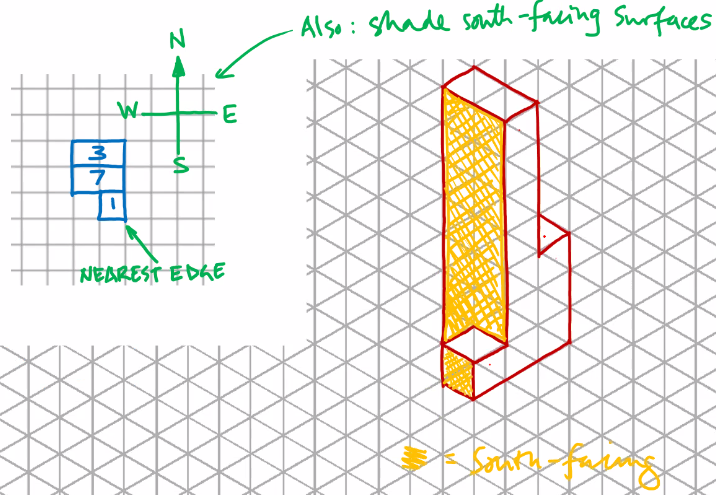 Also: shade south-facing surfaces
N
W E
S
3
7
1
NEAREST EDGE
= South-facing